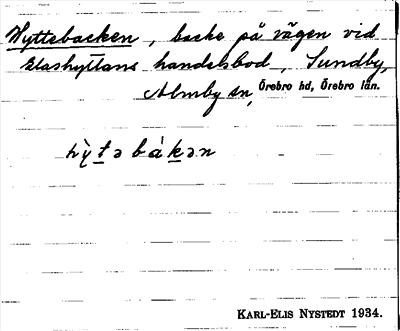 Hyttebacken, backe på vägen vid
Glashyttans handelsbod, Sundby,
Almby sn, Örebro hd, Örebro län.
hỳt̠ə bák̠ən
KARL-ELIS NYSTEDT 1934.